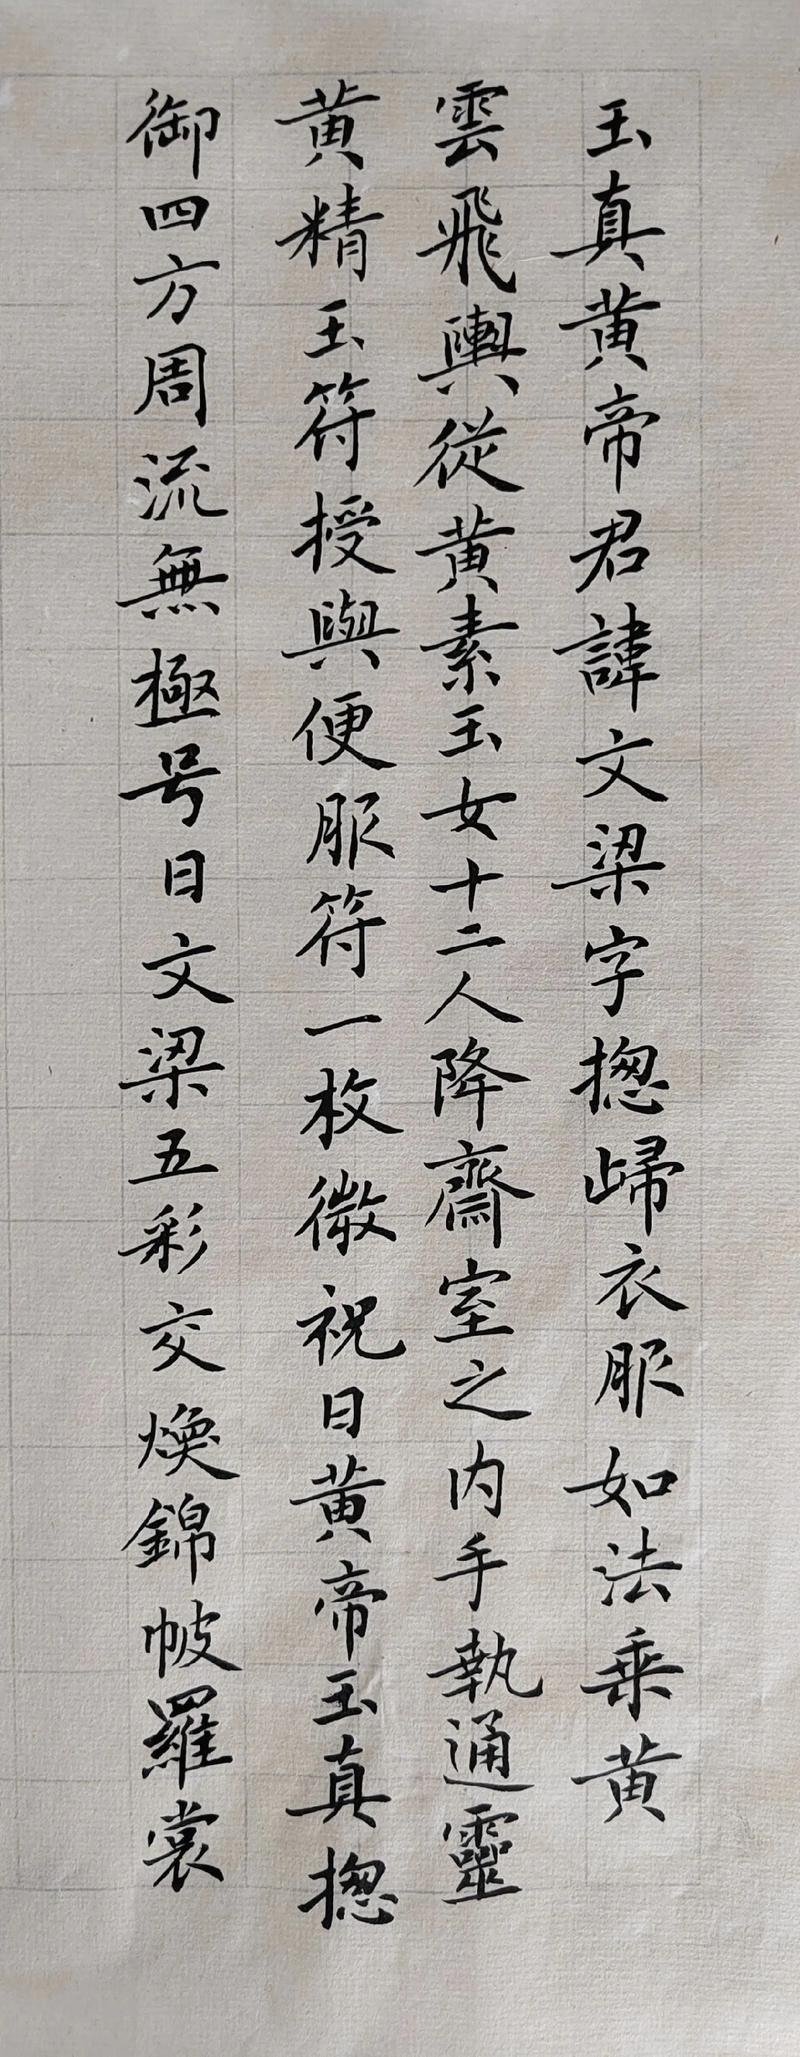 玉真黄帝君諱文梁字揔歸衣服如法乘黄
雲飛輿從黄素玉女十二人降齋室之内手執通靈
黄精玉符授與便服符一枚微祝曰黄帝玉真揔
御四方周流無極号曰文梁五彩交煥錦帔羅裳